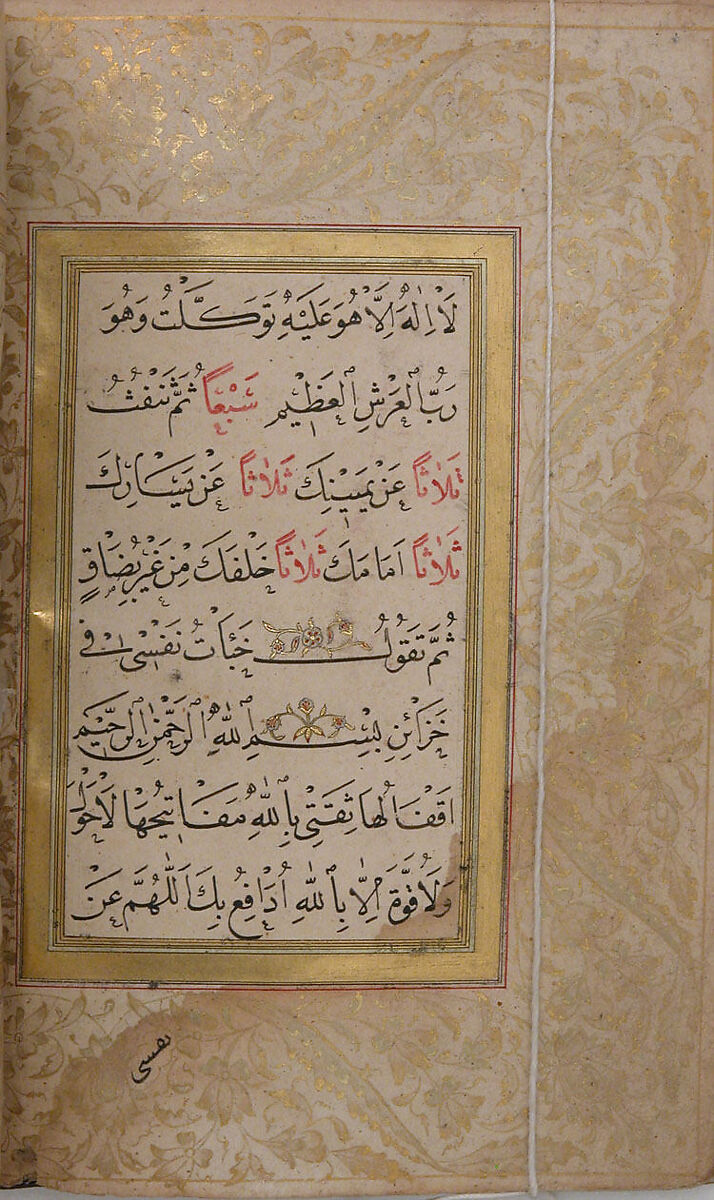 لَا اِلٰهَ اِلَّا هُوَ عَلَيْهِ تَوَكَّلْتُ وَهُوَ
رَبُّ الْعَرْشِ الْعَظِيْمِ سَبْعًا ثُمَّ تَنْفُثُ
ثَلَاثًا عَنْ يَمِيْنِكَ ثَلَاثًا عَنْ يَسَارِكَ
ثَلَاثًا اَمَامَكَ ثَلَاثًا خَلْفَكَ مِنْ غَيْرِ بُصَاقٍ
ثُمَّ تَقُولُ خَبَأْتُ نَفْسِى فِى
خَزَائِنِ بِسْمِ اللّٰهِ الرَّحْمٰنِ الرَّحِيْمِ
اَقْفَالُهَا ثِقَتِى بِاللّٰهِ مَفَاتِيْحُهَا لَا حَوْلَ
وَلَا قُوَّةَ اِلَّا بِاللّٰهِ اُدَافِعُ بِكَ اَللّٰهُمَّ عَنْ
نفسى